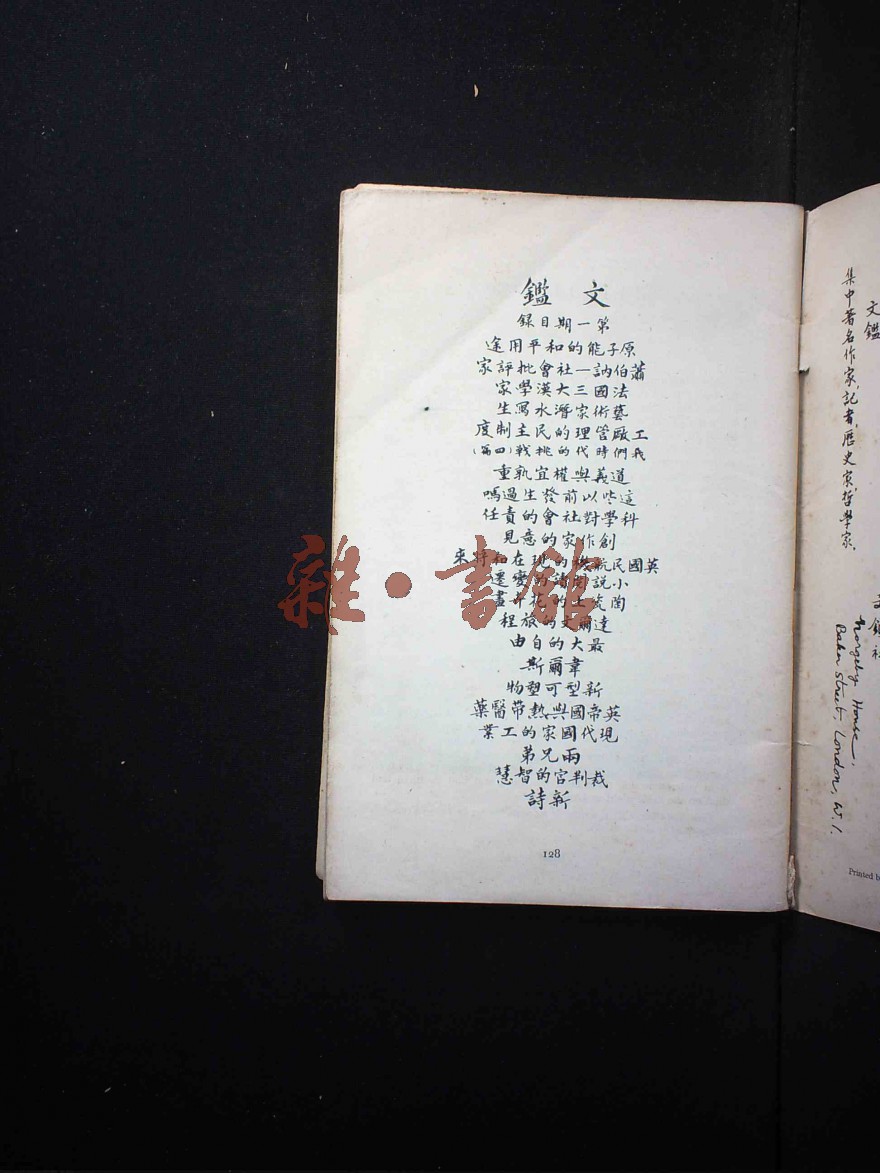 文鑑
第一期目録
原子能的和平用途
蕭伯訥—社會批評家
法國三大漢學家
藝術家潛水寫生
工廠管理的民主制度
我們時代的挑戰(四篇)
道義與權宜孰重
這些以前發生過嗎
科學對社會的責任
創作家的意見
英國民航機的現在和將來
小説
陶瓷
達爾文的旅程
最大的自由
韋爾斯
新型可塑物
英帝國與熱帶醫藥
現代國家的工業
兩兄弟
裁判官的智慧
新詩
128
文鑑
集中著名作家,記者,歷史家,哲學家.
文鑑社
Norgeby House,
Baker Street, London, W.1.
Printed by
雜·書館